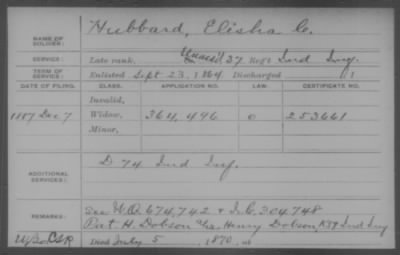 NAME OF SOLDIER: Hubbard, Elisha C.
SERVICE: Late rank, Unass'd 27 Reg't Ind Inf.
TERM OF SERVICE: Enlisted Sept 23, 1864 Discharged , 1
DATE OF FILING. CLASS. APPLICATION NO. LAW. CERTIFICATE NO.
Invalid,
1887 Dec. 7 Widow, 364,496 0 253661
Minor,
ADDITIONAL SERVICES: D 74 Ind Inf.
REMARKS: See W.O. 674,742 & I.C. 304748
Pat H. Dobson alias Henry Dobson, K59 Ind Inf
Died July 5, 1870, at